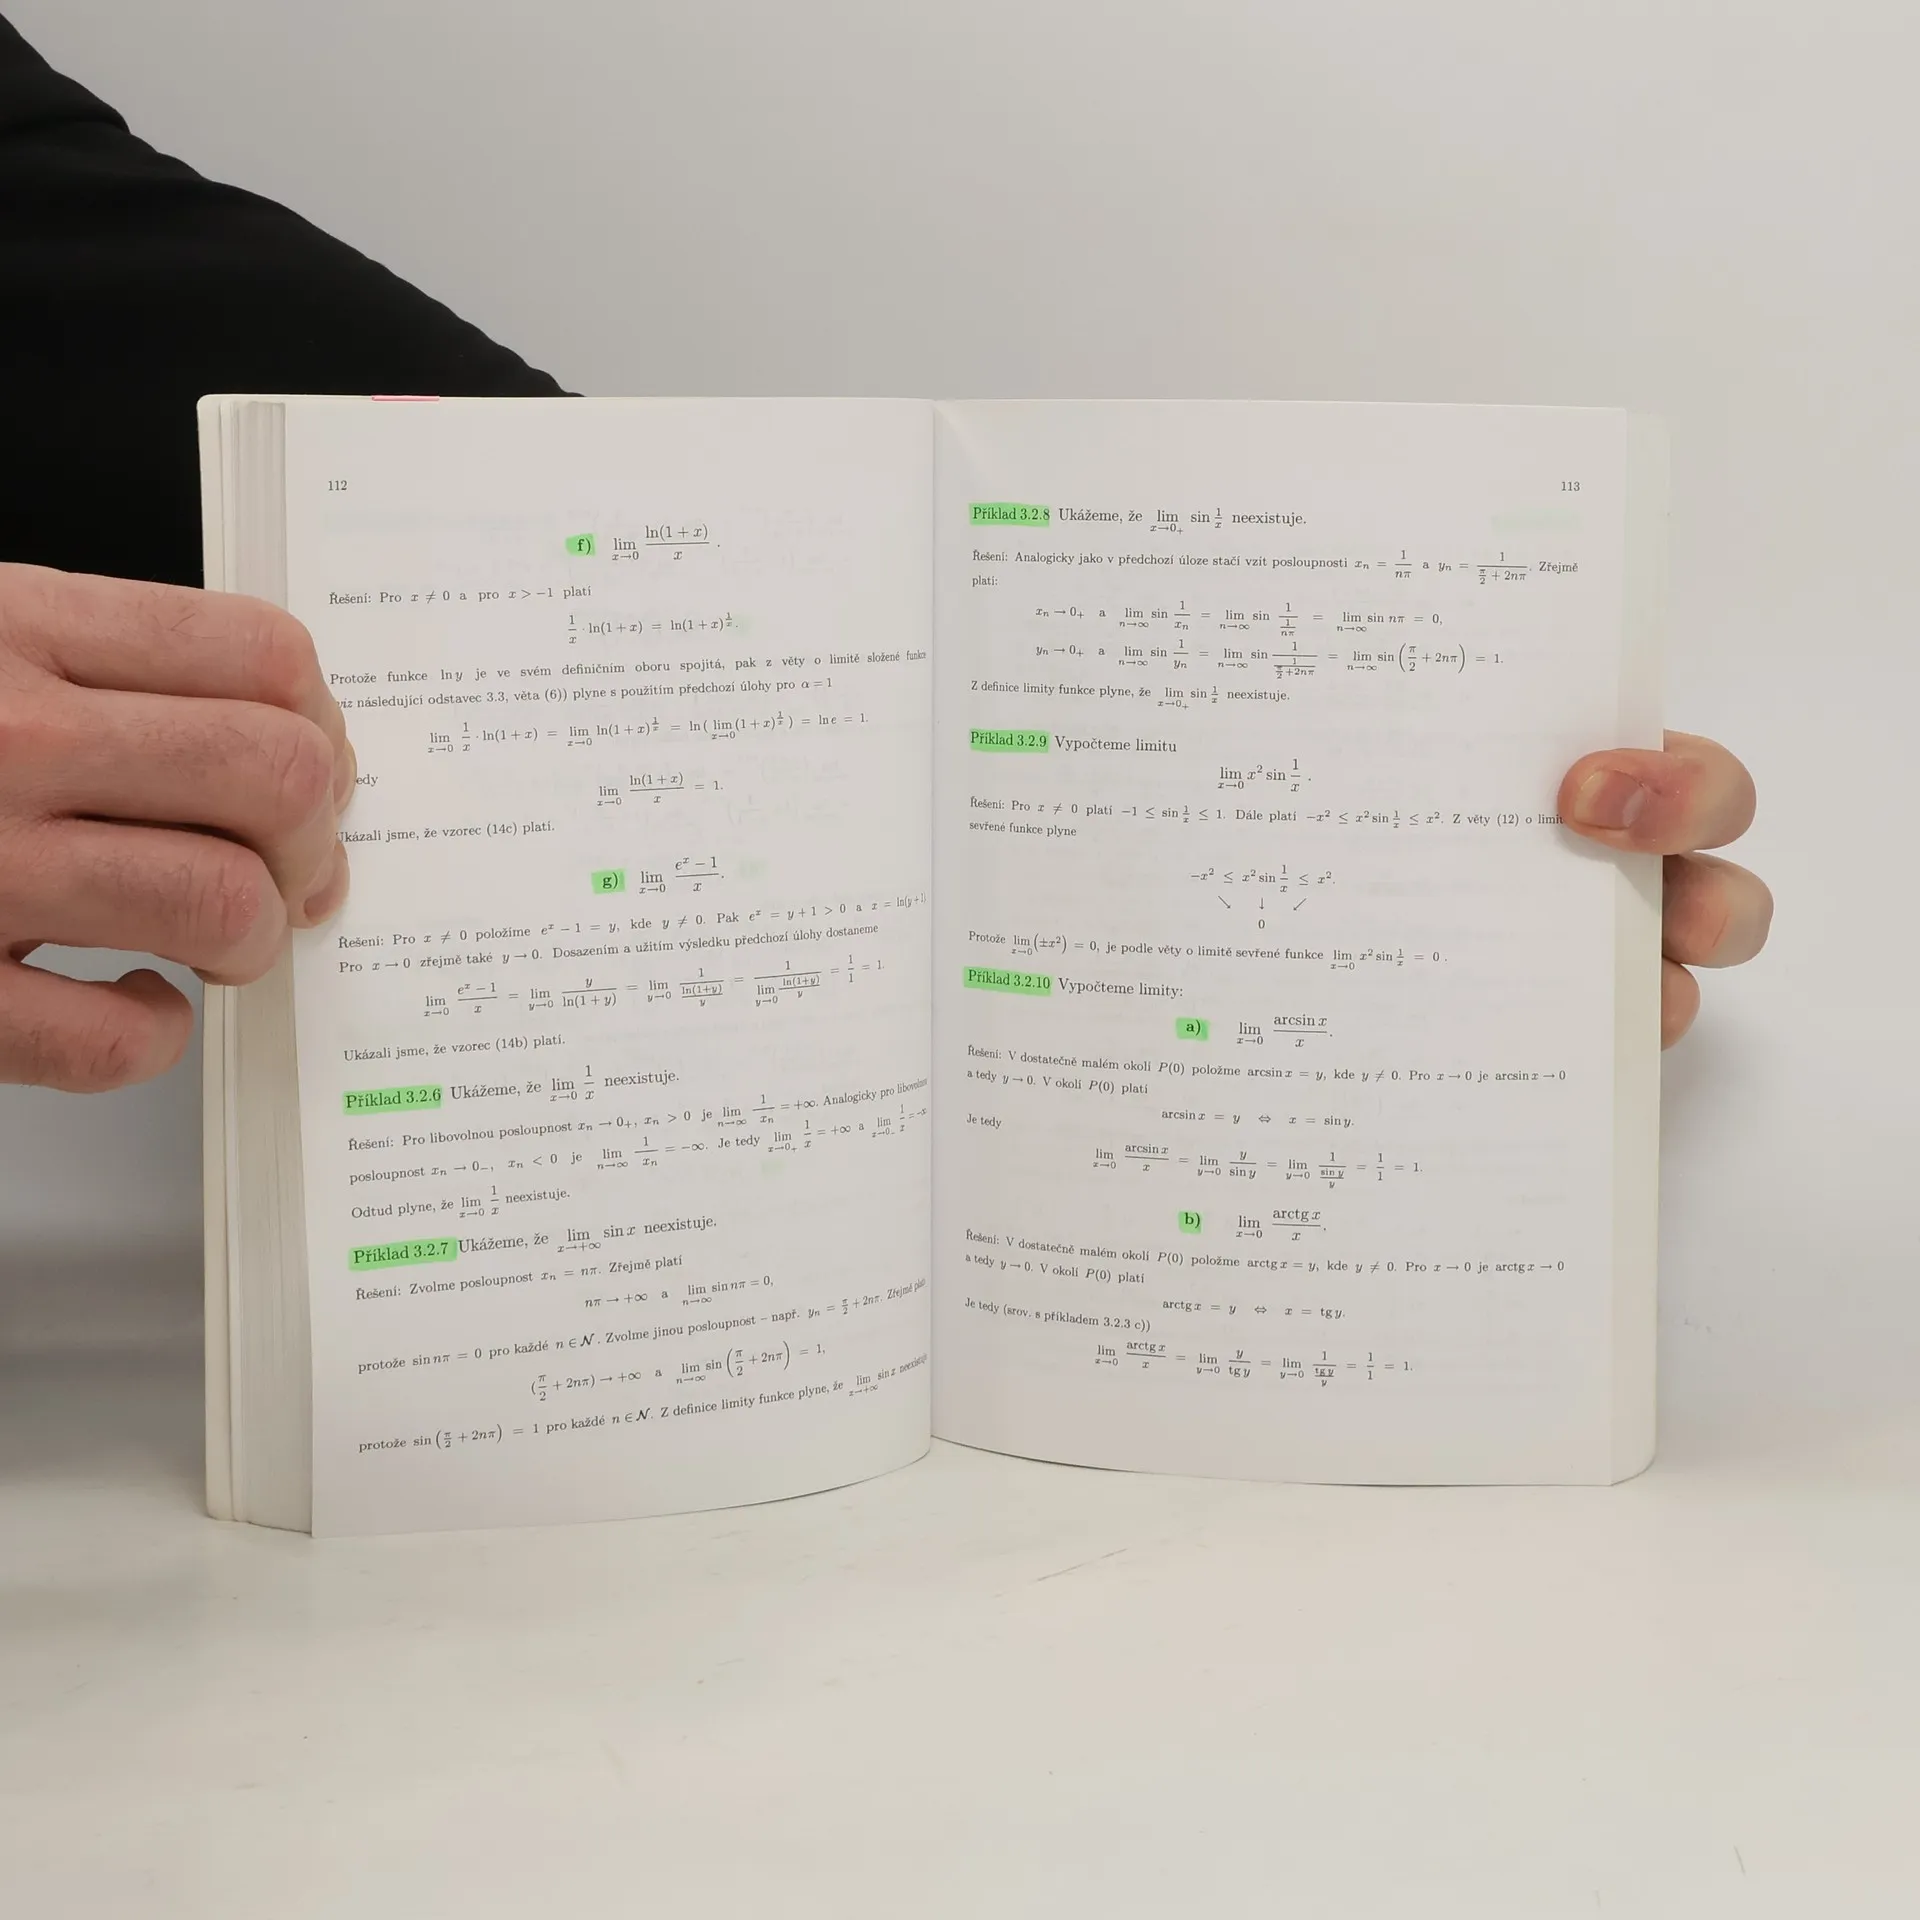 112
f) lim x→0 ln(1 + x) / x .
Řešení: Pro x ≠ 0 a pro x > −1 platí
1/x · ln(1 + x) = ln(1 + x)^(1/x).
Protože funkce ln y je ve svém definičním oboru spojitá, pak z věty o limitě složené funkce
viz následující odstavec 3.3, věta (6)) plyne s použitím předchozí úlohy pro α = 1
lim x→0 1/x · ln(1 + x) = lim x→0 ln(1 + x)^(1/x) = ln( lim x→0 (1 + x)^(1/x) ) = ln e = 1.
edy
lim x→0 ln(1 + x) / x = 1.
Ukázali jsme, že vzorec (14c) platí.
g) lim x→0 (e^x − 1) / x .
Řešení: Pro x ≠ 0 položíme e^x − 1 = y, kde y ≠ 0. Pak e^x = y + 1 > 0 a x = ln(y+1)
Pro x → 0 zřejmě také y → 0. Dosazením a užitím výsledku předchozí úlohy dostaneme
lim x→0 (e^x − 1) / x = lim y→0 y / ln(1 + y) = lim y→0 1 / (ln(1+y) / y) = 1 / (lim y→0 ln(1+y) / y) = 1/1 = 1.
Ukázali jsme, že vzorec (14b) platí.
Příklad 3.2.6 Ukážeme, že lim x→0 1/x neexistuje.
Řešení: Pro libovolnou posloupnost xn → 0+, xn > 0 je lim n→∞ 1/xn = +∞. Analogicky pro libovolnou
posloupnost xn → 0−, xn < 0 je lim n→∞ 1/xn = −∞. Je tedy lim x→0+ 1/x = +∞ a lim x→0− 1/x =
Odtud plyne, že lim x→0 1/x neexistuje.
Příklad 3.2.7 Ukážeme, že lim x→+∞ sin x neexistuje.
Řešení: Zvolme posloupnost xn = nπ. Zřejmě platí
nπ → +∞ a lim n→∞ sin nπ = 0,
protože sin nπ = 0 pro každé n ∈ N. Zvolme jinou posloupnost – např. yn = π/2 + 2nπ. Zřejmě platí
(π/2 + 2nπ) → +∞ a lim n→∞ sin (π/2 + 2nπ) = 1,
protože sin (π/2 + 2nπ) = 1 pro každé n ∈ N. Z definice limity funkce plyne, že lim x→+∞ sin x neexistuje
113
Příklad 3.2.8 Ukážeme, že lim x→0+ sin 1/x neexistuje.
Řešení: Analogicky jako v předchozí úloze stačí vzít posloupnosti xn = 1/nπ a yn = 1 / (π/2 + 2nπ). Zřejmě
platí:
xn → 0+ a lim n→∞ sin 1/xn = lim n→∞ sin 1 / (1/nπ) = lim n→∞ sin nπ = 0,
yn → 0+ a lim n→∞ sin 1/yn = lim n→∞ sin 1 / (1 / (π/2 + 2nπ)) = lim n→∞ sin (π/2 + 2nπ) = 1.
Z definice limity funkce plyne, že lim x→0+ sin 1/x neexistuje.
Příklad 3.2.9 Vypočteme limitu
lim x→0 x² sin 1/x .
Řešení: Pro x ≠ 0 platí −1 ≤ sin 1/x ≤ 1. Dále platí −x² ≤ x² sin 1/x ≤ x². Z věty (12) o limit
sevřené funkce plyne
−x² ≤ x² sin 1/x ≤ x².
↘ ↓ ↙
0
Protože lim x→0 (±x²) = 0, je podle věty o limitě sevřené funkce lim x→0 x² sin 1/x = 0 .
Příklad 3.2.10 Vypočteme limity:
a) lim x→0 arcsin x / x .
Řešení: V dostatečně malém okolí P(0) položme arcsin x = y, kde y ≠ 0. Pro x → 0 je arcsin x → 0
a tedy y → 0. V okolí P(0) platí
arcsin x = y ⇔ x = sin y.
Je tedy
lim x→0 arcsin x / x = lim y→0 y / sin y = lim y→0 1 / (sin y / y) = 1/1 = 1.
b) lim x→0 arctg x / x .
Řešení: V dostatečně malém okolí P(0) položme arctg x = y, kde y ≠ 0. Pro x → 0 je arctg x → 0
a tedy y → 0. V okolí P(0) platí
arctg x = y ⇔ x = tg y.
Je tedy (srov. s příkladem 3.2.3 c))
lim x→0 arctg x / x = lim y→0 y / tg y = lim y→0 1 / (tg y / y) = 1/1 = 1.